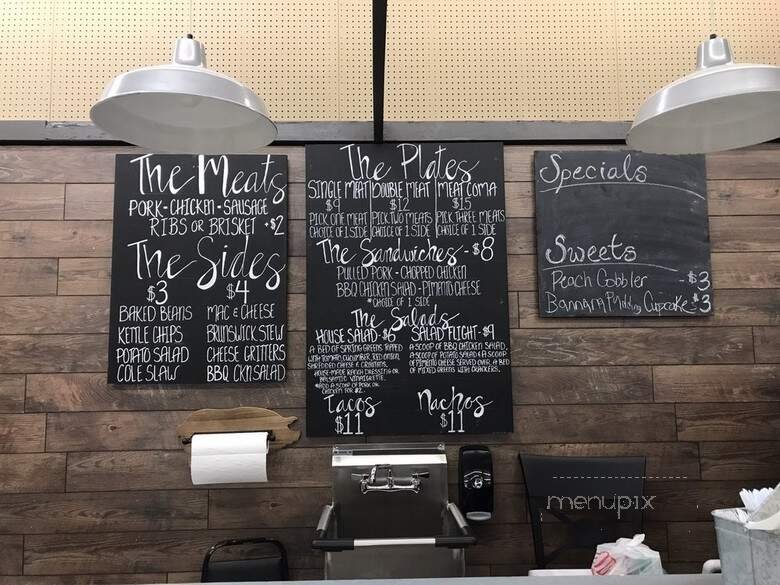 The Meats
PORK - CHICKEN - SAUSAGE
RIBS OR BRISKET +$2
The Sides
$3 $4
BAKED BEANS MAC & CHEESE
KETTLE CHIPS BRUNSWICK STEW
POTATO SALAD CHEESE GRITTERS
COLE SLAW BBQ CKN SALAD
The Plates
SINGLE MEAT DOUBLE MEAT MEAT COMA
$9 $12 $15
PICK ONE MEAT PICK TWO MEATS PICK THREE MEATS
CHOICE OF 1 SIDE CHOICE OF 1 SIDE CHOICE OF 1 SIDE
The Sandwiches - $8
PULLED PORK - CHOPPED CHICKEN
BBQ CHICKEN SALAD - PIMENTO CHEESE
*CHOICE OF 1 SIDE
The Salads
HOUSE SALAD - $6 SALAD FLIGHT - $9
A BED OF SPRING GREENS TOPPED
WITH TOMATO, CUCUMBER, RED ONION,
SHREDDED CHEESE & CROUTONS,
HOUSE-MADE RANCH DRESSING OR
BALSAMIC VINAIGRETTE.
*ADD A SCOOP OF PORK OR
CHICKEN FOR $2
A SCOOP OF BBQ CHICKEN SALAD,
A SCOOP OF POTATO SALAD & A SCOOP
OF PIMENTO CHEESE SERVED OVER A BED
OF MIXED GREENS WITH CRACKERS.
Tacos Nachos
$11 $11
Specials
Sweets
Peach Cobbler - $3
Bannana Pudding Cupcake - $3
menupix